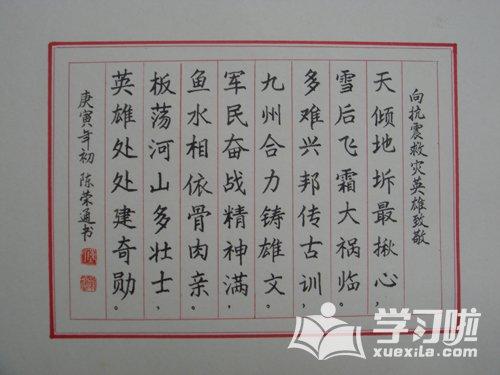 向抗震救灾英雄致敬
天倾地坼最揪心,
雪后飞霜大祸临。
多难兴邦传古训,
九州合力铸雄文。
军民奋战精神满,
鱼水相依骨肉亲。
板荡河山多壮士,
英雄处处建奇勋。
庚寅年初 陈荣通书
学习啦
xuexila.com